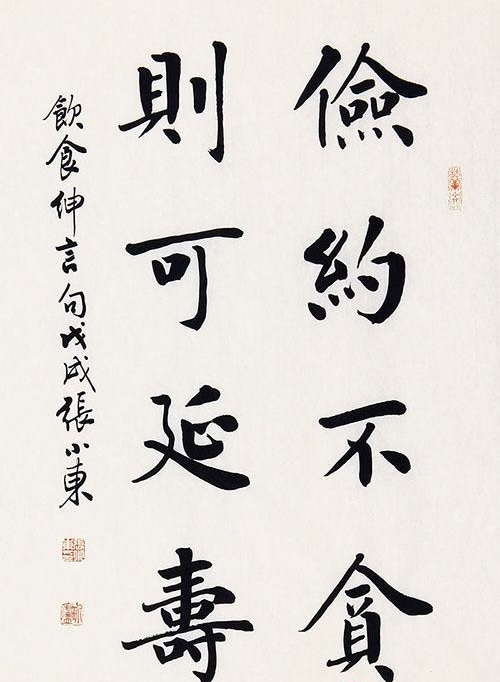 儉約不貪
則可延壽
飲食紳言句戊戌張小東